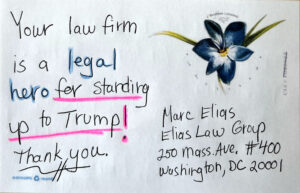 Your law firm
is a legal
hero for standing
up to Trump!
Thank you.
Marc Elias
Elias Law Group
250 Mass. Ave. #400
Washington, DC 20001